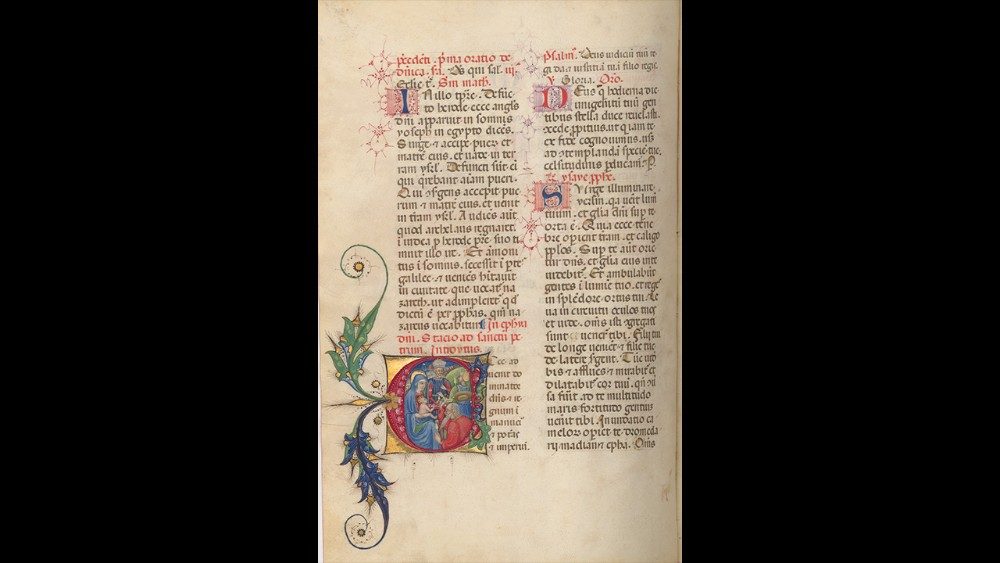 dnica. Os qui sal.
Sm math.
In illo tpre. Defuc
to herode ecce angls
dni apparuit in somnis
yoseph in egypto dices.
Surge et accipe puer et
matre eius. et uade in ter
ram ysrl. Defuncti sut ei
qui qrebant aiam pueri.
Qui surgens accepit pue
rum et matre eius. et uenit
in tram ysrl. Audies aut
quod archelaus regnaret
i iudea p herode pre suo ti
muit illo ire. Et amoni
tus i somnis. secessit i ptes
galilee et uenies hitauit
in ciuitate que uocat na
zareth. ut adimpleret qd
dictu e per pphas. qm na
zareus uocabitur. In ephia
dni. Stacio ad sanctu pe
trum. Introytus.
Ecce ad
uenit do
minator
dns et re
gnum i
manu ei
et potas
et imperiu.
Psalm. Deus iudiciu tuu re
gi da et iusticia tua filio regis.
Gloria. Oro.
Deus q hodierna die
unigenitu tuu gen
tibus stella duce reuelasti.
cede ppitius. ut q iam te
ex fide cognouimus. usq
ad contemplanda specie tue
celsitudinis pducam. P
ysaye pphe.
Surge illuminare
iherlm. qa uenit lum
tuum. et glia dni sup te
orta e. Quia ecce tene
bre opient tram. et caligo
pplos. Sup te aut orie
tur dns. et glia eius in te
uidebit. Et ambulabut
gentes i lumine tuo. et rege
in splendore ortus tui. Le
ua in circuitu oculos tuos
et uide. oms isti 
sunt uenert tibi. Filii tui
de longe uenient et filie tue
de latere surgent. Tuc uide
bis et afflues et mirabit et
dilatabit cor tuu. qn 
sa fuit ad te multitudo
maris fortitudo gentium
uenit tibi. Inundatio ca
melor opiet te. dromeda
rii madian et epha. Oms